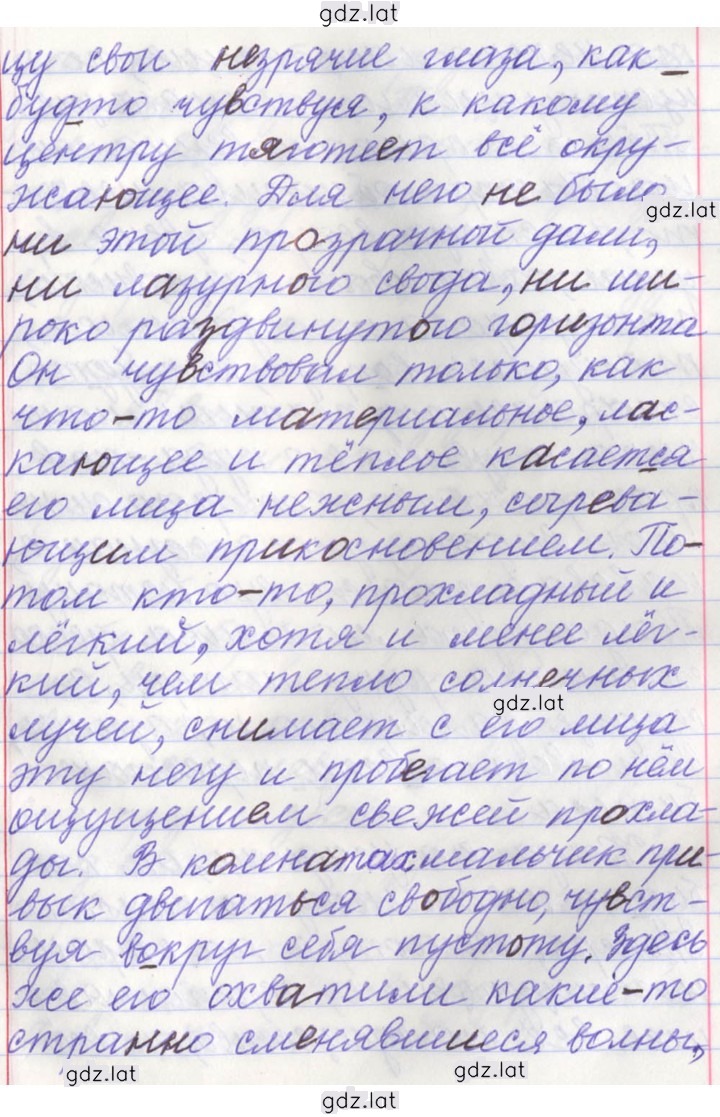 gdz.lat
цу свои незрячие глаза, как
будто чувствуя, к какому
центру тяготеет всё окру-
жающее. Для него не было
gdz.lat
ни этой прозрачной дали,
ни лазурного свода, ни ши-
роко раздвинутого горизонта
Он чувствовал только, как
что-то материальное, лас-
кающее и тёплое касается
его лица нежным, согрева-
ющим прикосновением. По-
том кто-то, прохладный и
лёгкий, хотя и менее лёг-
кий, чем тепло солнечных
gdz.lat
лучей, снимает с его лица
эту негу и пробегает по нём
ощущением свежей прохла-
ды. В комнатах мальчик при-
вык двигаться свободно, чувст-
вуя вокруг себя пустоту. Здесь
же его охватили какие-то
странно сменявшиеся волны,
gdz.lat
gdz.lat
gdz.lat